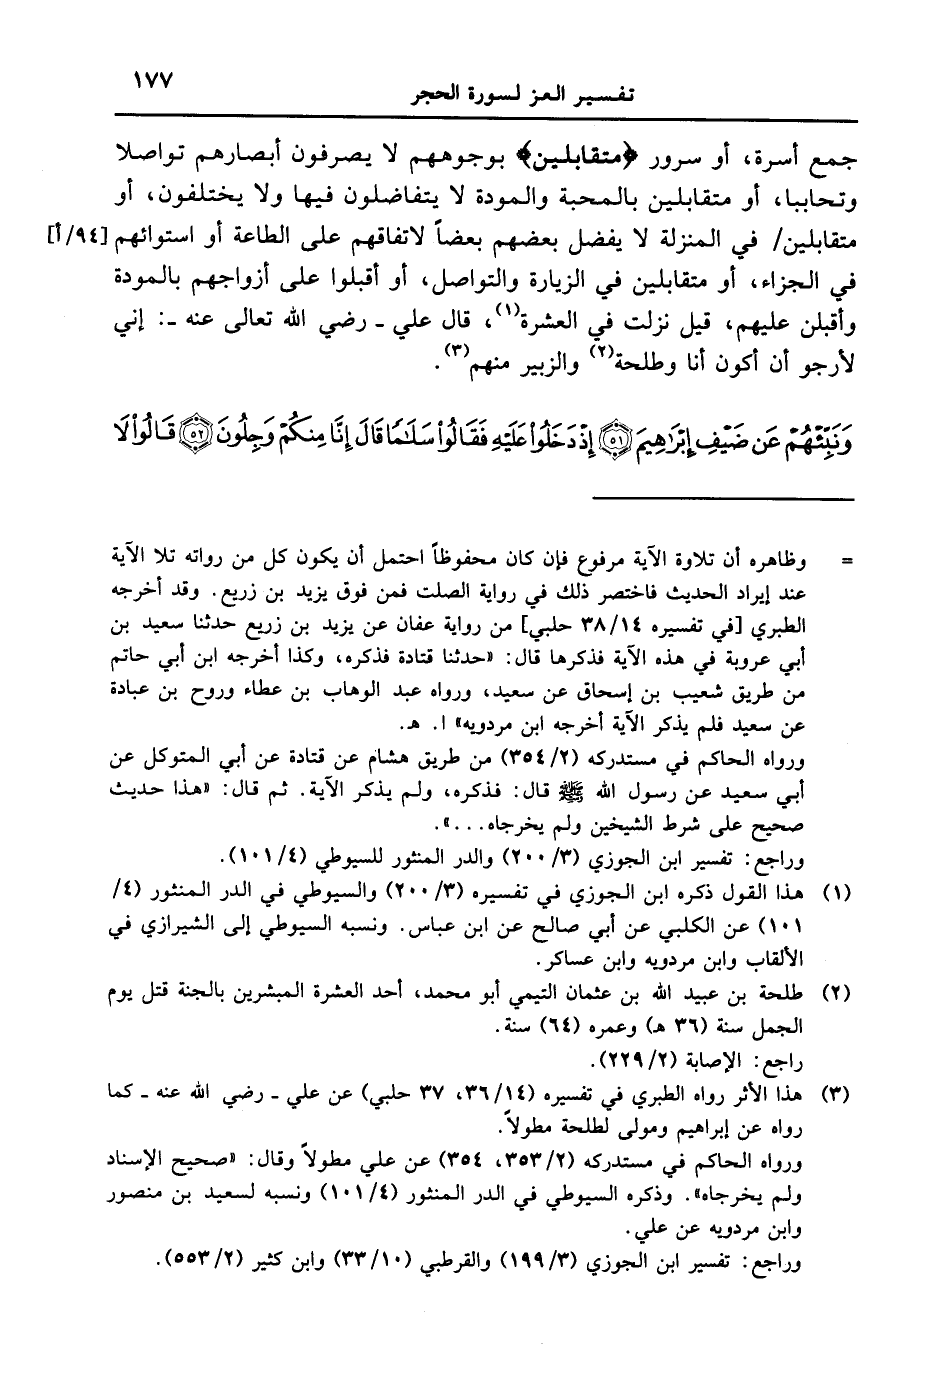 ١٧٧
تفسير العز لسورة الحجر
جمع أسرة، أو سرور ﴿متقابلين﴾ بوجوههم لا يصرفون أبصارهم تواصلا
وتحاببا، أو متقابلين بالمحبة والمودة لا يتفاضلون فيها ولا يختلفون، أو
متقابلين/ في المنزلة لا يفضل بعضهم بعضاً لاتفاقهم على الطاعة أو استوائهم [٩٤/أ]
في الجزاء، أو متقابلين في الزيارة والتواصل، أو أقبلوا على أزواجهم بالمودة
وأقبلن عليهم، قيل نزلت في العشرة(١)، قال علي ـ رضي الله تعالى عنه ـ: إني
لأرجو أن أكون أنا وطلحة(٢) والزبير منهم(٣).
وَنَبِّئْهُمْ عَن ضَيْفِ إِبْرَاهِيمَ ٥١ إِذْ دَخَلُوا عَلَيْهِ فَقَالُوا سَلَامًا قَالَ إِنَّا مِنكُمْ وَجِلُونَ ٥٢ قَالُوا لَا
= وظاهره أن تلاوة الآية مرفوع فإن كان محفوظاً احتمل أن يكون كل من رواته تلا الآية
عند إيراد الحديث فاختصر ذلك في رواية الصلت فمن فوق يزيد بن زريع. وقد أخرجه
الطبري [في تفسيره ٣٨/١٤ حلبي] من رواية عفان عن يزيد بن زريع حدثنا سعيد بن
أبي عروبة في هذه الآية فذكرها قال: «حدثنا قتادة فذكره، وكذا أخرجه ابن أبي حاتم
من طريق شعيب بن إسحاق عن سعيد، ورواه عبد الوهاب بن عطاء وروح بن عبادة
عن سعيد فلم يذكر الآية أخرجه ابن مردويه» ا. هـ.
ورواه الحاكم في مستدركه (٣٥٤/٢) من طريق هشام عن قتادة عن أبي المتوكل عن
أبي سعيد عن رسول الله ﷺ قال: فذكره، ولم يذكر الآية. ثم قال: «هذا حديث
صحيح على شرط الشيخين ولم يخرجاه...».
وراجع: تفسير ابن الجوزي (٢٠٠/٣) والدر المنثور للسيوطي (١٠١/٤).
(١) هذا القول ذكره ابن الجوزي في تفسيره (٢٠٠/٣) والسيوطي في الدر المنثور (٤/
١٠١) عن الكلبي عن أبي صالح عن ابن عباس. ونسبه السيوطي إلى الشيرازي في
الألقاب وابن مردويه وابن عساكر.
(٢) طلحة بن عبيد الله بن عثمان التيمي أبو محمد، أحد العشرة المبشرين بالجنة قتل يوم
الجمل سنة (٣٦ هـ) وعمره (٦٤) سنة.
راجع: الإصابة (٢٢٩/٢).
(٣) هذا الأثر رواه الطبري في تفسيره (٣٦/١٤، ٣٧ حلبي) عن علي ـ رضي الله عنه ـ كما
رواه عن إبراهيم ومولى لطلحة مطولاً.
ورواه الحاكم في مستدركه (٣٥٣/٢، ٣٥٤) عن علي مطولاً وقال: «صحيح الإسناد
ولم يخرجاه». وذكره السيوطي في الدر المنثور (١٠١/٤) ونسبه لسعيد بن منصور
وابن مردويه عن علي.
وراجع: تفسير ابن الجوزي (١٩٩/٣) والقرطبي (٣٣/١٠) وابن كثير (٥٥٣/٢).